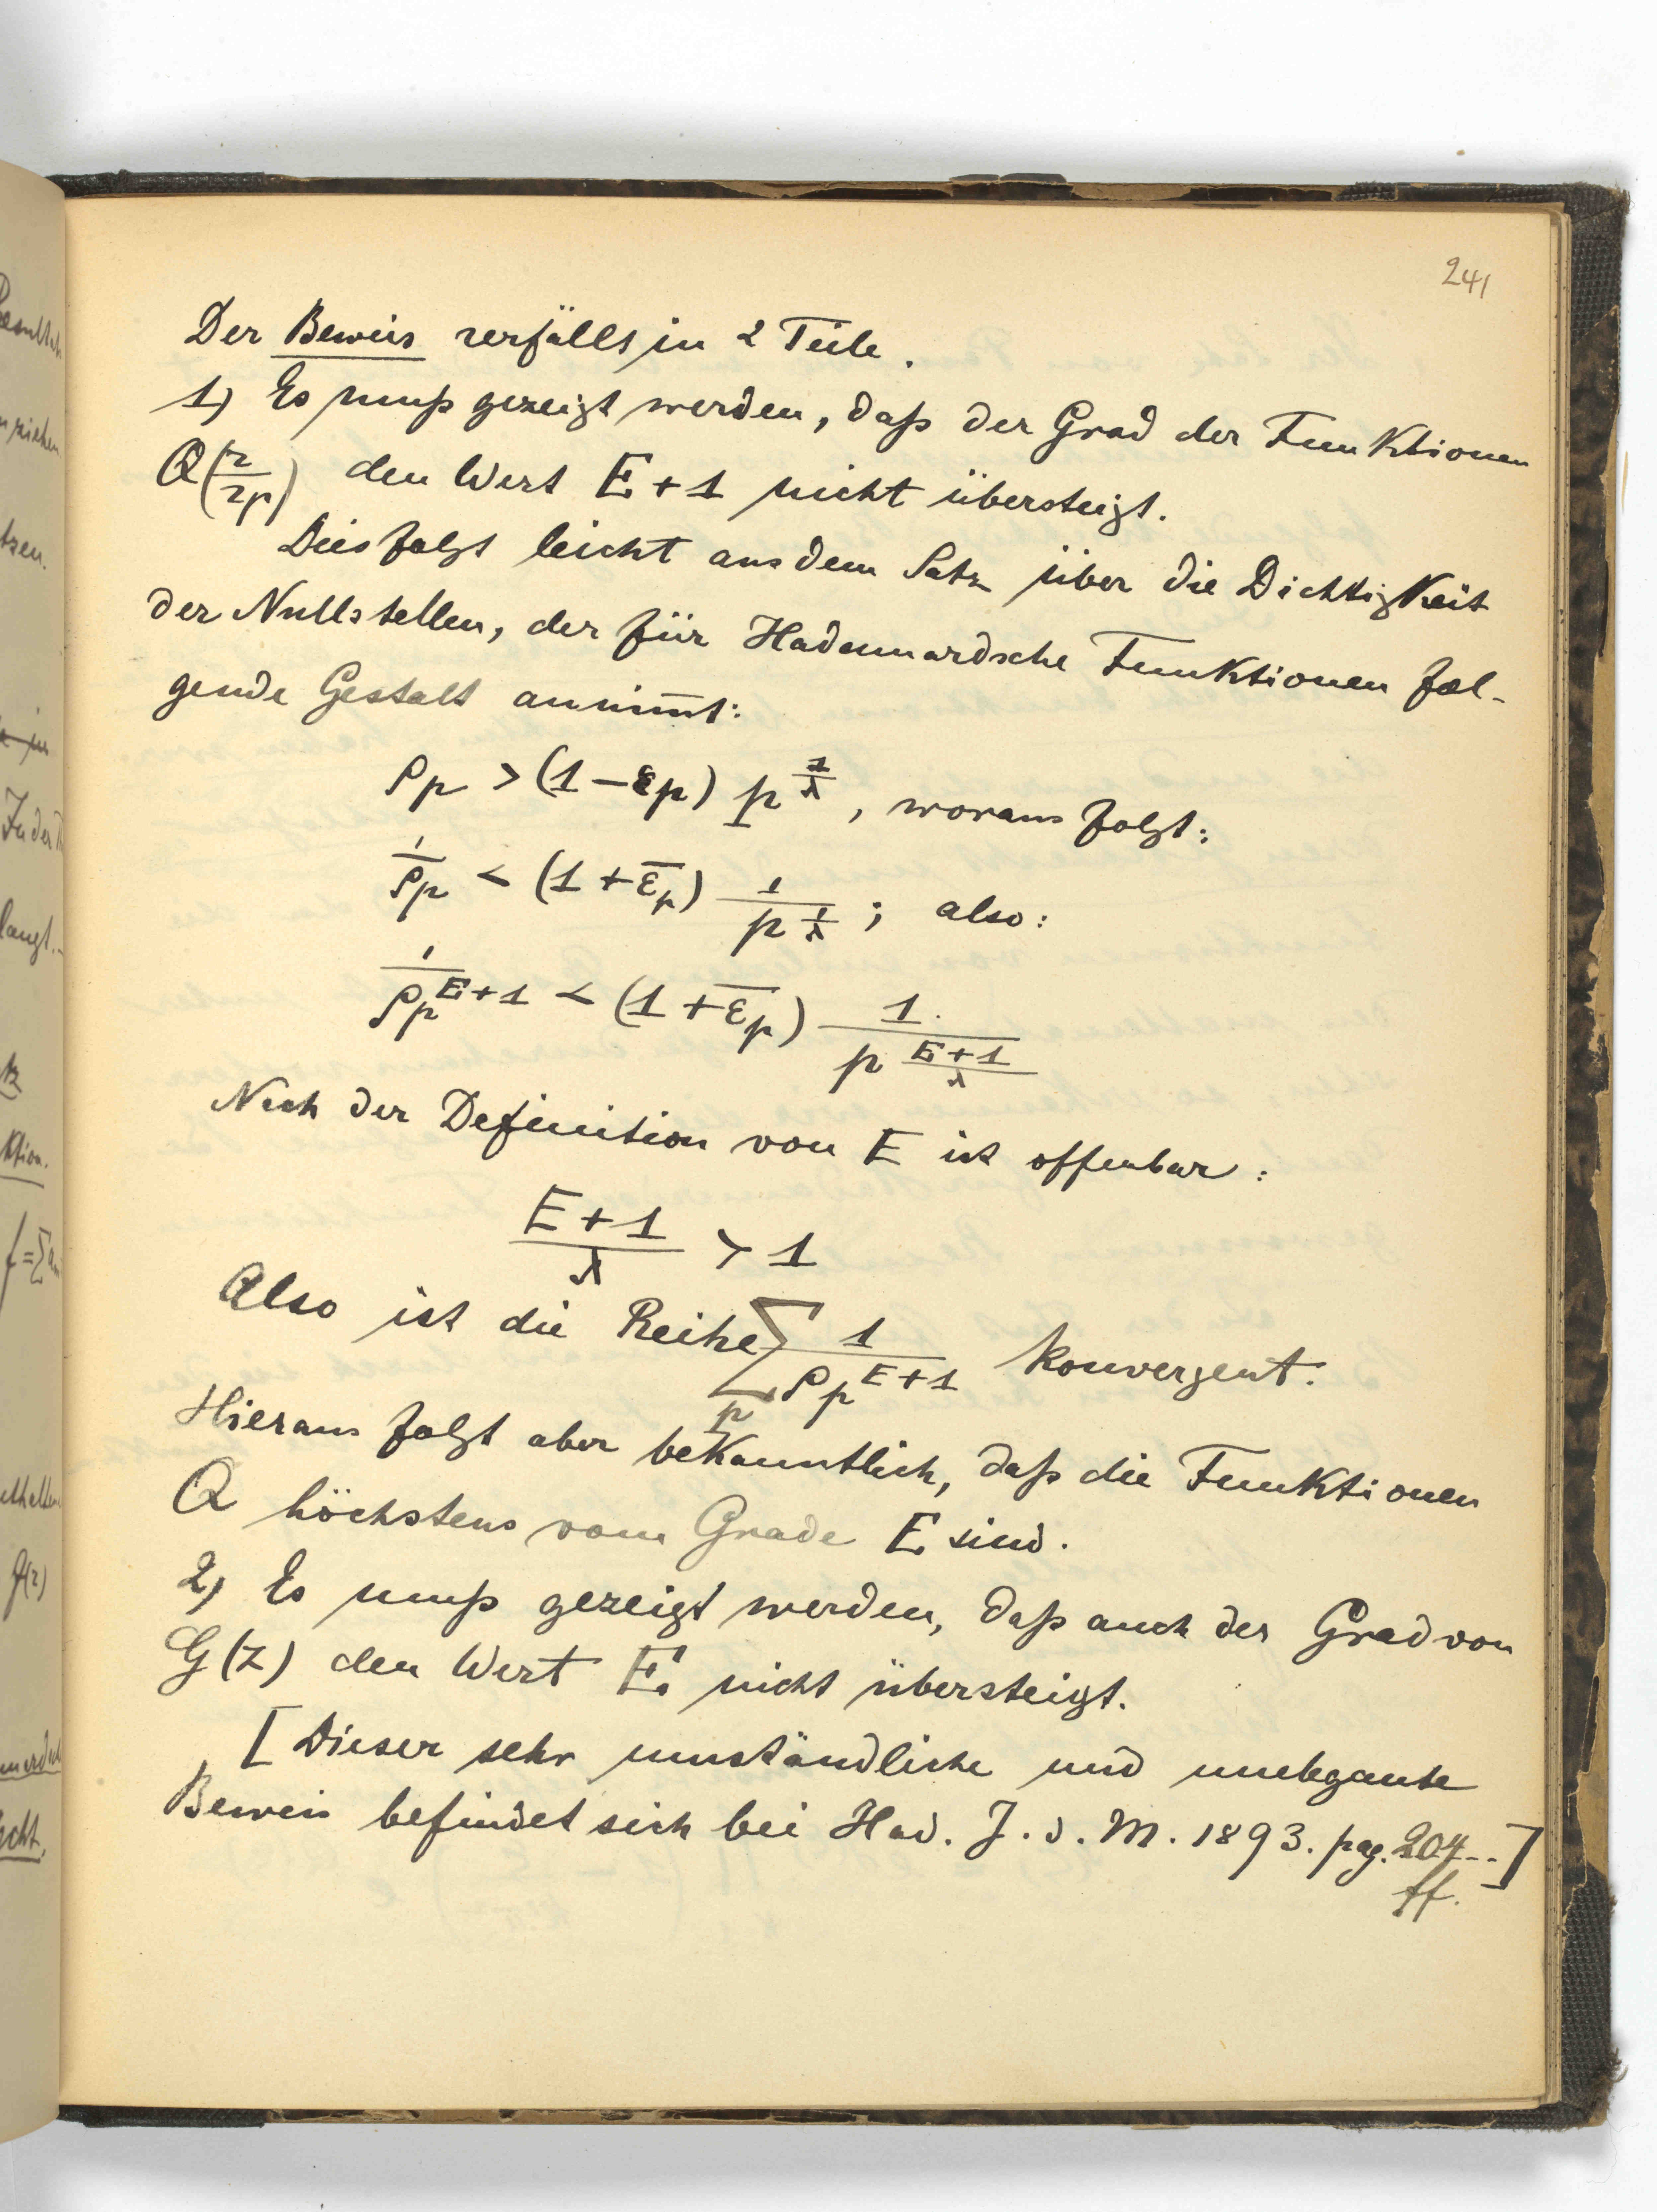 241
Der Beweis zerfällt in 2 Teile.
1) Es muß gezeigt werden, daß der Grad der Funktionen
Q(z/zp) den Wert E+1 nicht übersteigt.
Dies folgt leicht aus dem Satz über die Dichtigkeit
der Nullstellen, der für Hadamardsche Funktionen fol-
gende Gestalt annim̅t:
ρp > (1 − εp) p^(1/λ), woraus folgt:
1/ρp < (1 + ε̅p) 1/p^(1/λ); also:
1/ρp^(E+1) < (1 + ε̅p) 1/p^((E+1)/λ)
Nach der Definition von E ist offenbar:
(E+1)/λ > 1
Also ist die Reihe ∑p 1/ρp^(E+1) konvergent.
Hieraus folgt aber bekanntlich, daß die Funktionen
Q höchstens vom Grade E sind.
2) Es muß gezeigt werden, daß auch der Grad von
G(z) den Wert E nicht übersteigt.
[Dieser sehr umständliche und unelegante
Beweis befindet sich bei Had. J. d. M. 1893. pag. 204--]
ff.